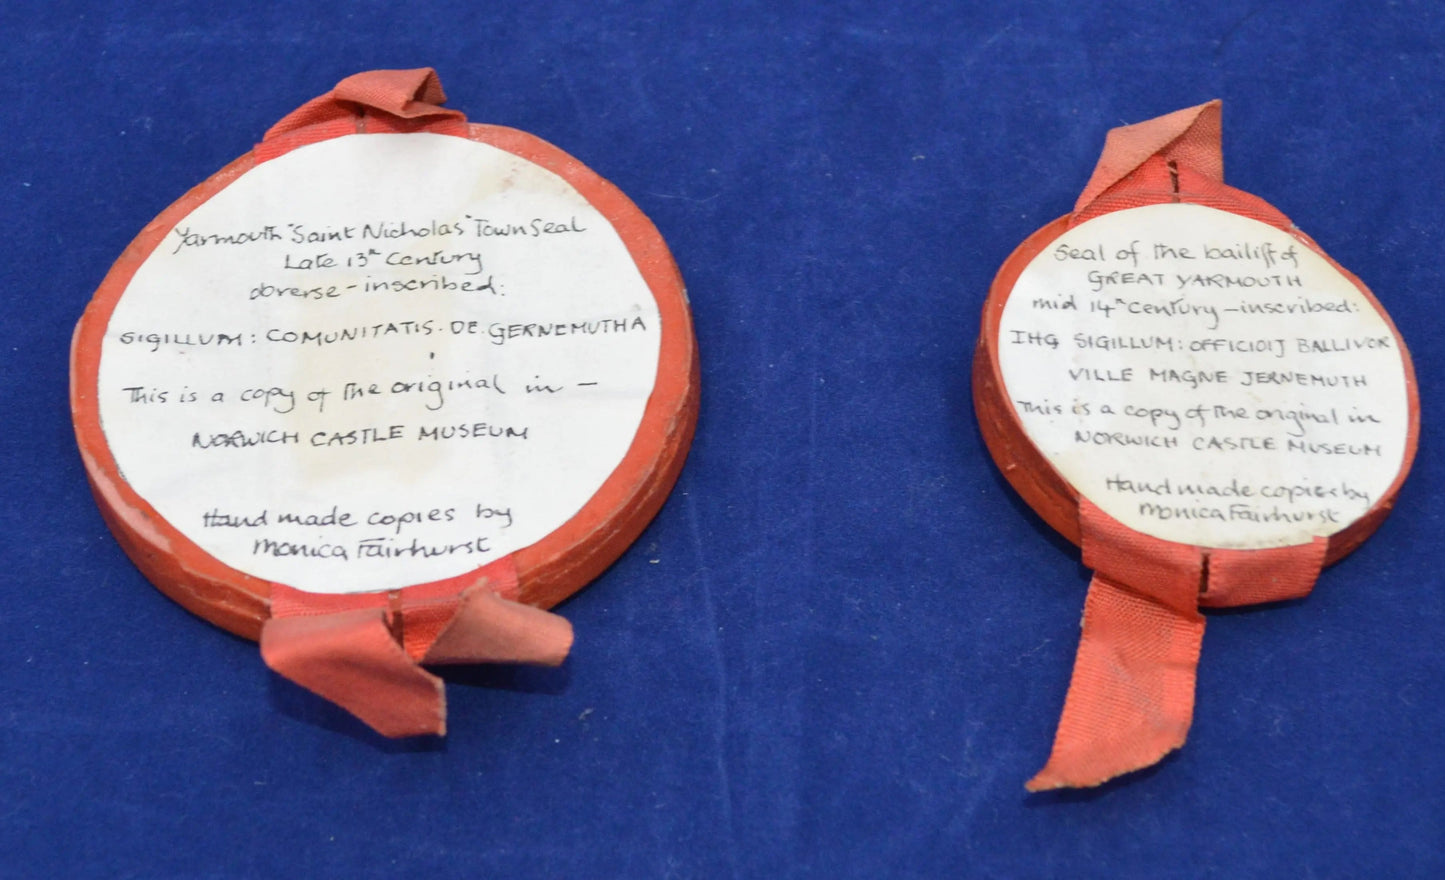 Yarmouth "Saint Nicholas" Town Seal
Late 13th Century
obverse - inscribed:
SIGILLUM: COMUNITATIS. DE. GERNEMUTHA
This is a copy of the original in -
NORWICH CASTLE MUSEUM
Hand made copies by
Monica Fairhurst
Seal of the bailiff of
GREAT YARMOUTH
mid 14th Century - inscribed:
IHG SIGILLUM: OFFICIOIJ BALLIVOR
VILLE MAGNE JERNEMUTH
This is a copy of the original in
NORWICH CASTLE MUSEUM
Hand made copies by
Monica Fairhurst